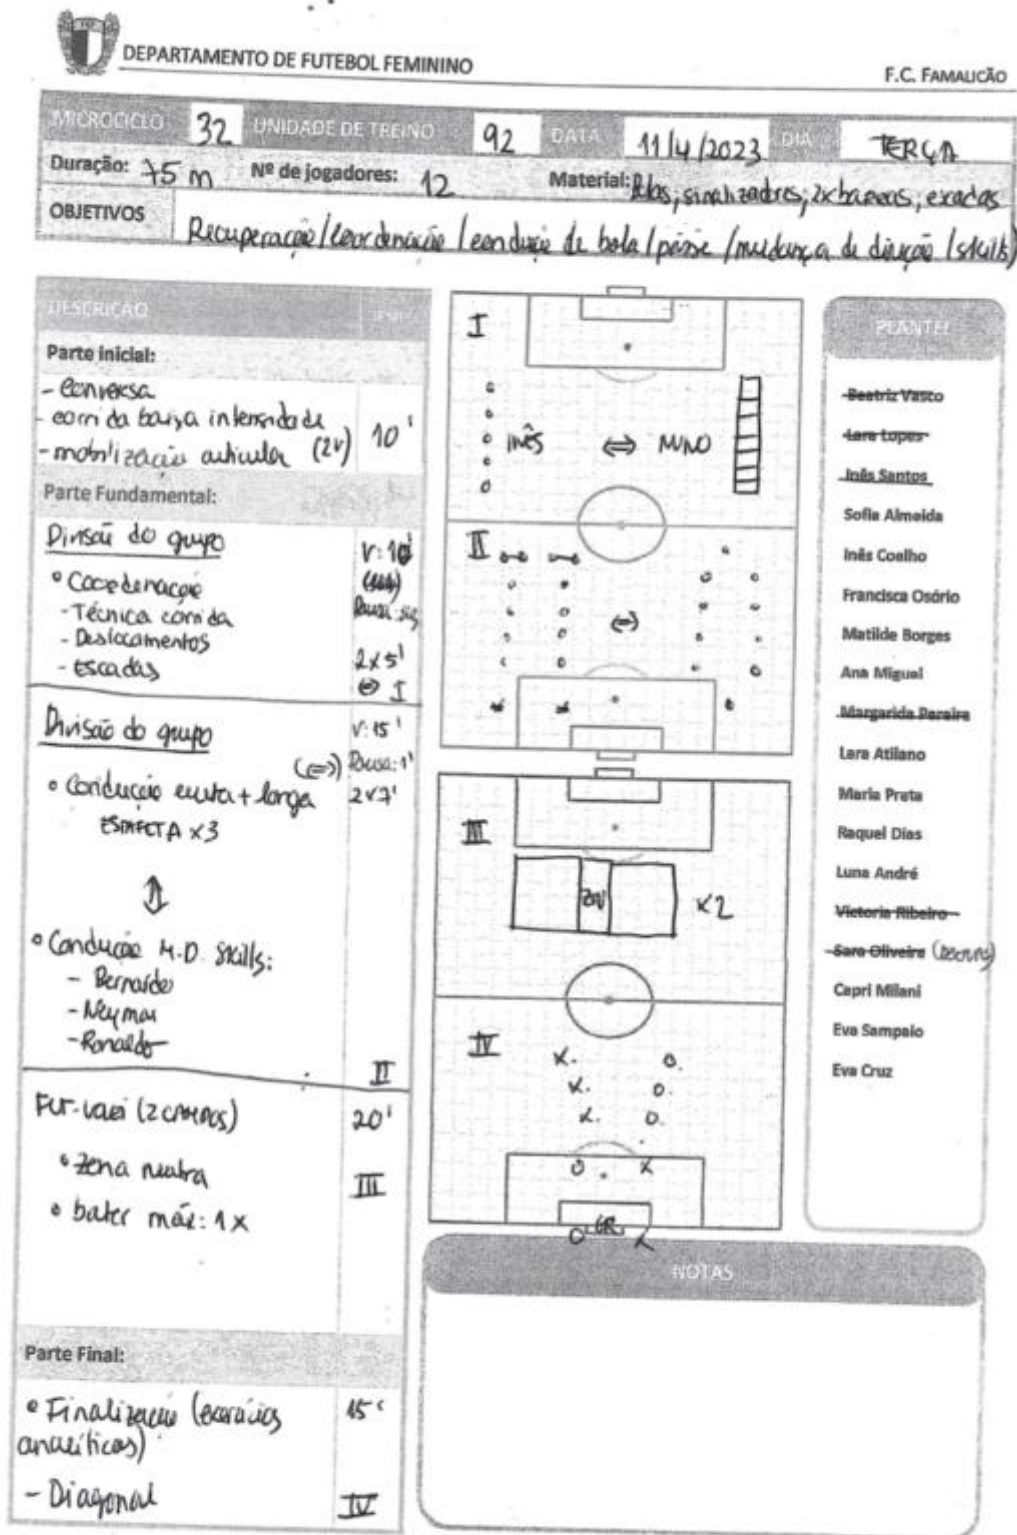 DEPARTAMENTO DE FUTEBOL FEMININO
F.C. FAMALICÃO
MICROCICLO 32 UNIDADE DE TREINO 92 DATA 11/4/2023 DIA TERÇA
Duração: 75 m Nº de jogadores: 12 Material: Bolas; sinalizadores; 2x barreiras; escadas
OBJETIVOS Recuperação / coordenação / condução de bola / passe / mudança de direção / skills
DESCRIÇÃO TEMPO
Parte inicial:
- Conversa
- corrida baixa intensidade
- mobilização articular (2v) 10'
Parte Fundamental:
Divisão do grupo V: 10'
• Coordenação
- Técnica corrida Pausa:
- Deslocamentos
- Escadas 2x5'
I
Divisão do grupo V: 15'
(⇔) Pausa: 1'
• Condução curta + larga 2x7'
ESTAFETA x3
⇕
• Condução M.D. Skills:
- Bernardo
- Neymar
- Ronaldo
II
FUT-VOLEI (2 CAMPOS) 20'
• zona neutra III
• bater máx: 1x
Parte Final:
• Finalização (exercícios 15'
analíticos)
- Diagonal IV
I
INÊS ⇔ NUNO
II
⇔
III
ZN x2
IV
X. O.
X. O.
X. O.
O . X
O GR X
PLANTEL
Beatriz Vasco
Lara Lopes
Inês Santos
Sofia Almeida
Inês Coelho
Francisca Osório
Matilde Borges
Ana Miguel
Margarida Pereira
Lara Atilano
Maria Prata
Raquel Dias
Luna André
Victoria Ribeiro
Sara Oliveira
Capri Milani
Eva Sampaio
Eva Cruz
NOTAS